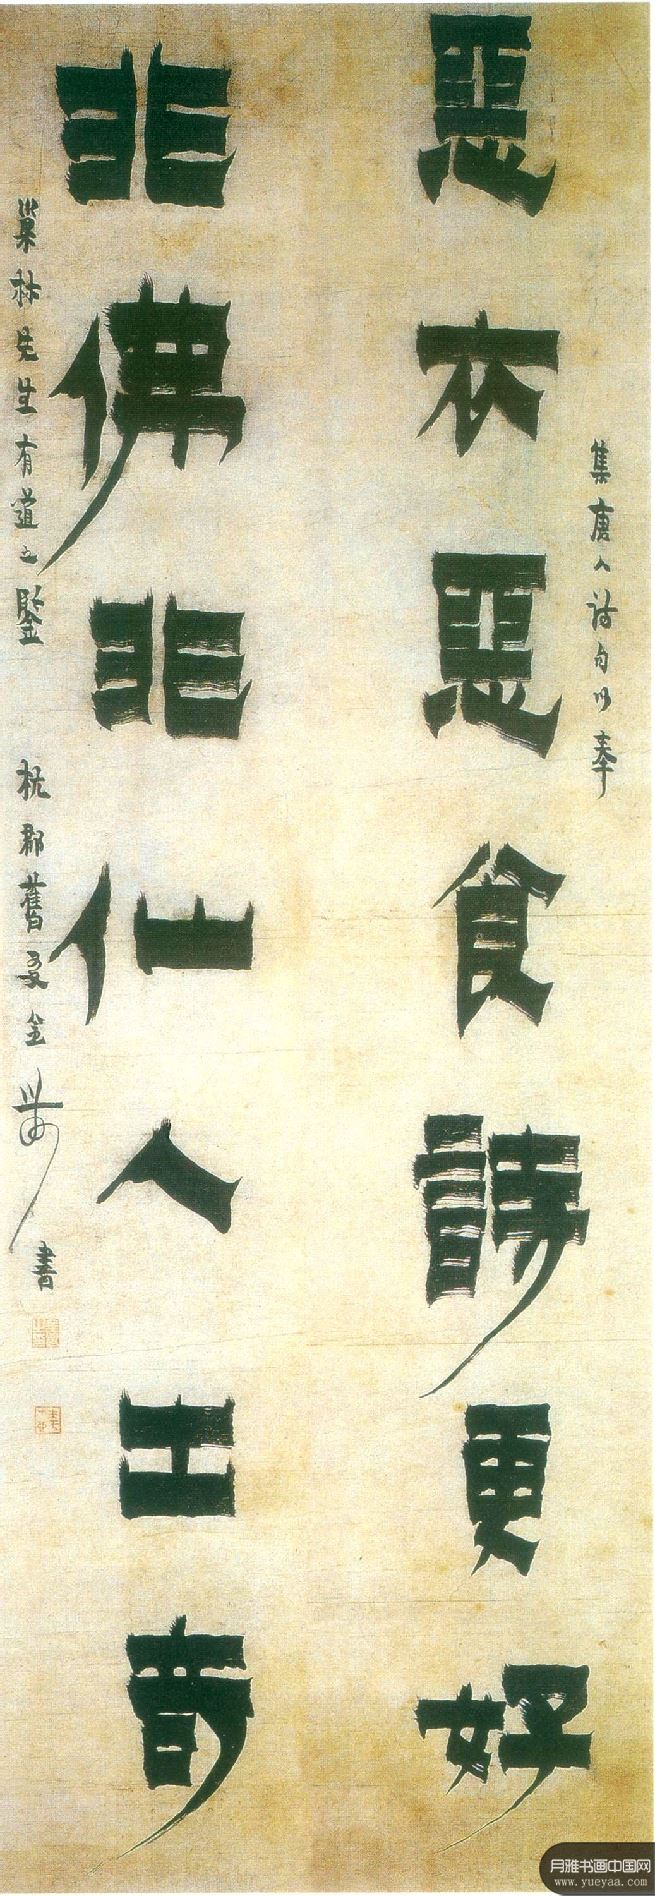 集唐人詩句以奉
惡衣惡食詩更好
非佛非仙人出奇
巢林先生有道之鑒
杭郡舊友金農書
月雅书画中国网
www.yueyaa.com